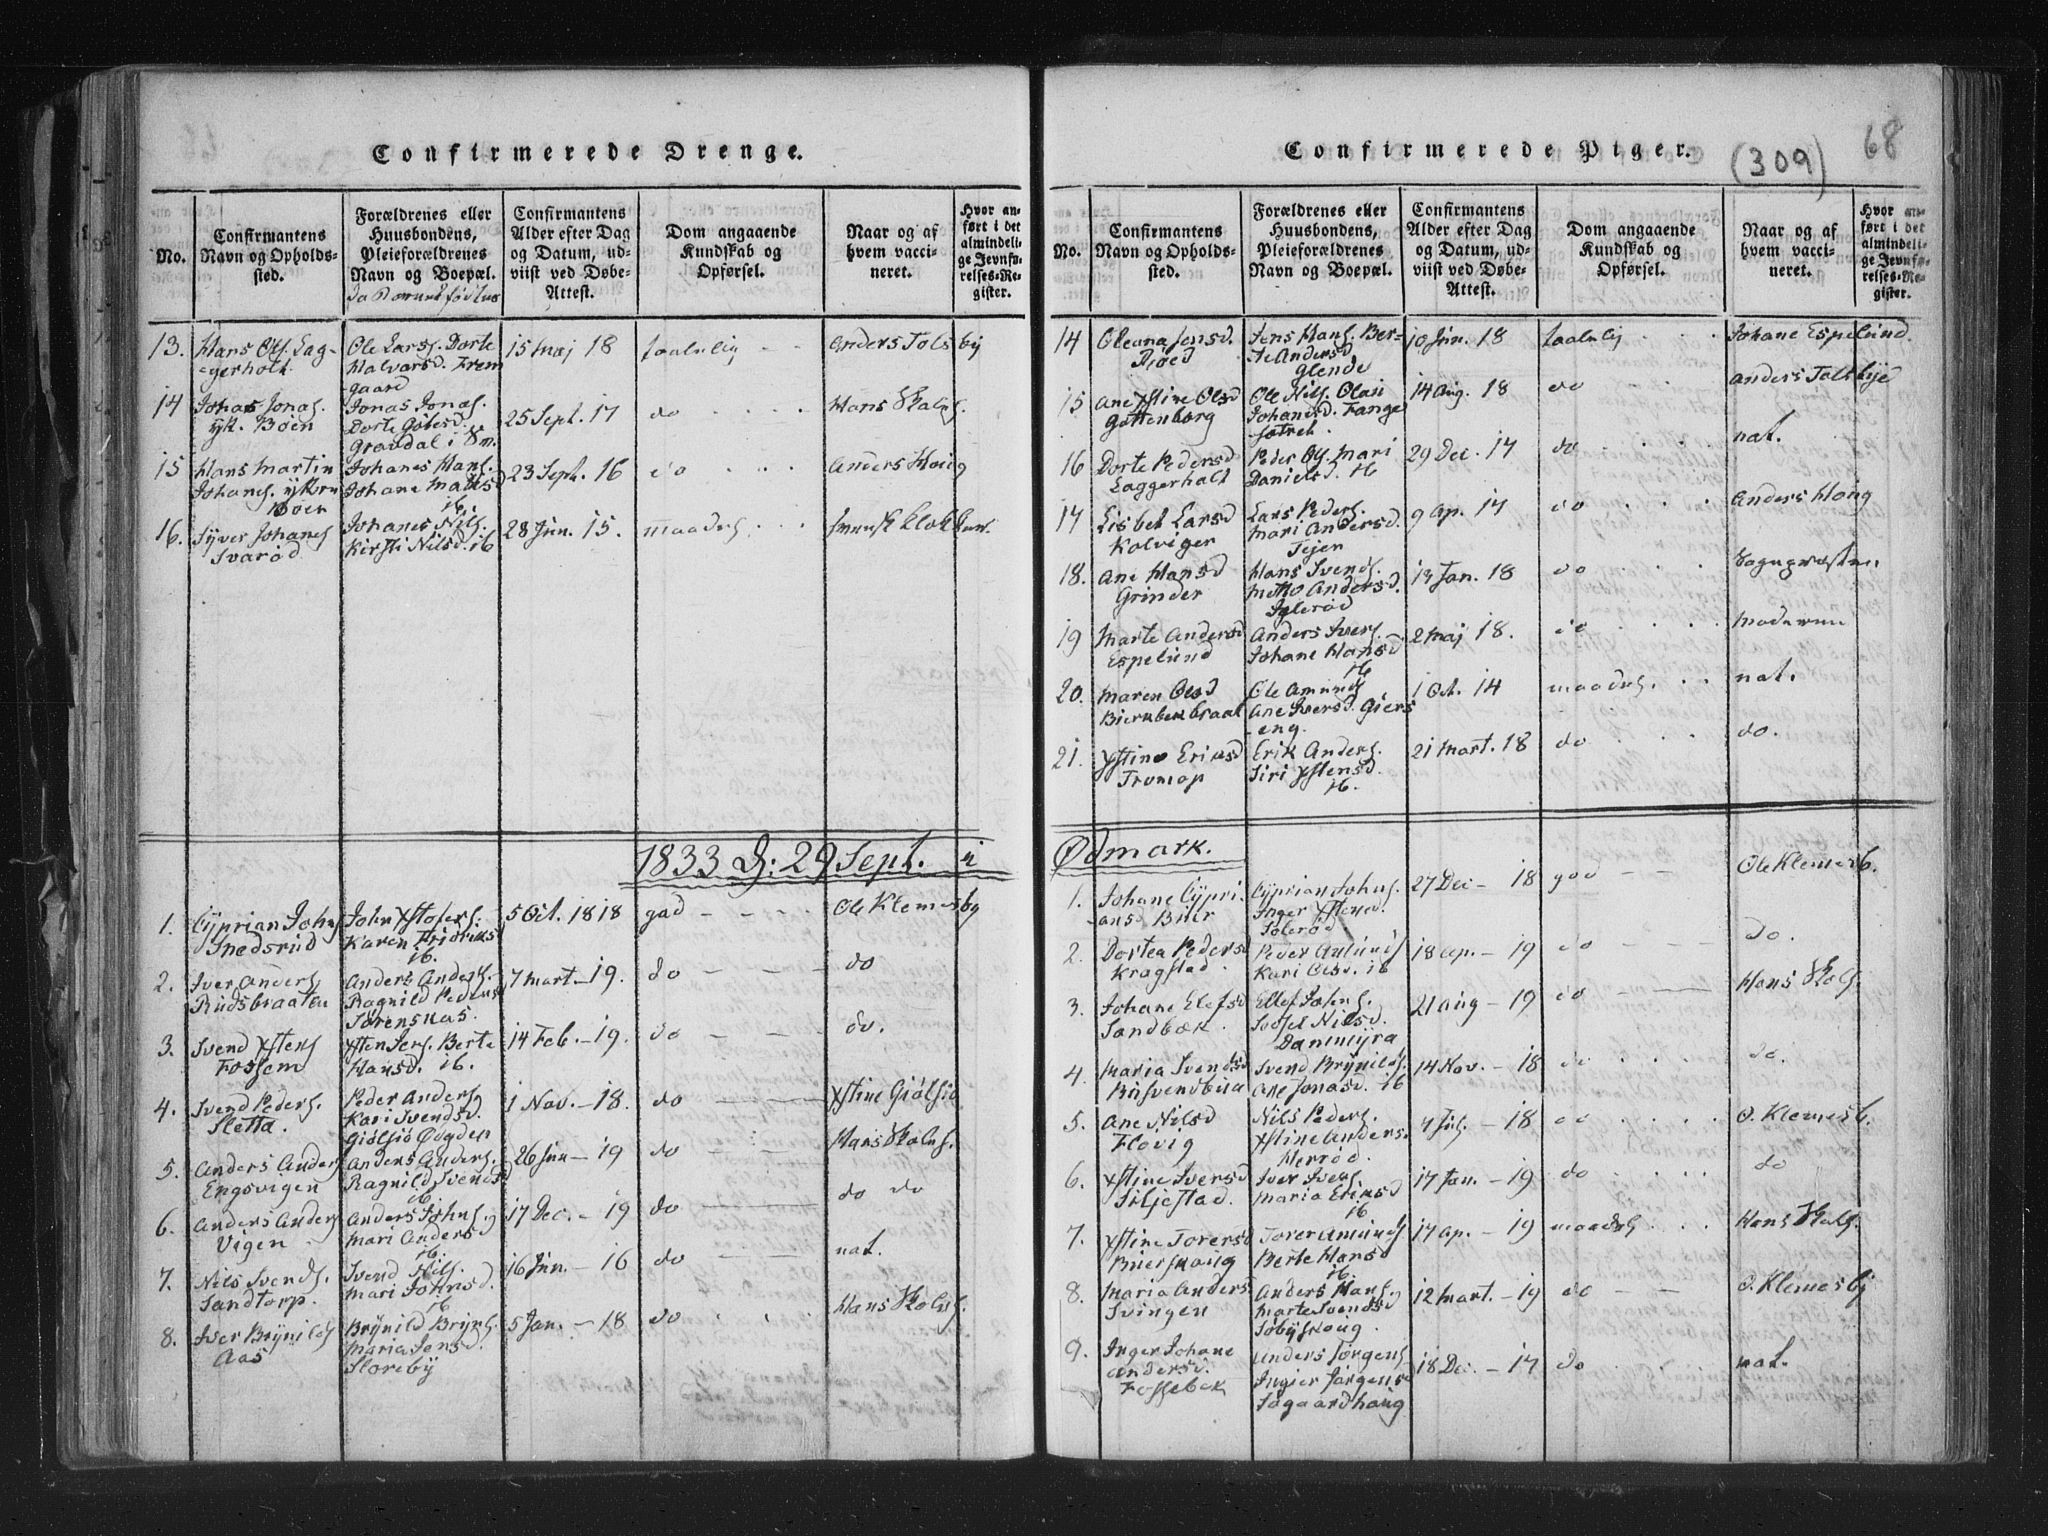 Confirmerede Drenge.
No.
Confirmantens
Navn og Opholds-
sted.
Forældrenes eller
Huusbondens,
Pleieforældrenes
Navn og Boepæl.
Confirmantens
Alder efter Dag
og Datum, ud-
viist ved Døbe-
Attest.
Dom angaaende
Kundskab og
Opførsel.
Naar og af
hvem vacci-
neret.
Hvor an-
ført i det
almindeli-
ge Jevnfø-
relses-Re-
gister.
13. Hans Ols. Lag-
gerholt
Ole Lars. Dorte
Halvarsd. Frem
gaard
15 Maj 18
taalelig
Anders Tolsby
14 Johan Jonas.
Boen
Jonas Jonas.
Dorte
Gravdal i
25 Sept. 17
do
Hans
15 Hans Martin
Johans.
Boen
Johanes Hans.
Johane
ib.
23 Sept. 16
do
Anders Houg
16. Syver Johanes
Svarød
Johanes Nils.
Kirsti Nilsd. ib
28 Jun. 15.
maadel
1833 D: 29 Sept. i
1. Cyprian Johns
Snedsrud
John
Karen Fridriks
ib.
5 Oct. 1818
god
Ole Klemesby
2. Iver Anders
Rudsbraaten
Anders Anders.
Ragnild Peders
Sørensnas.
7 Mart - 19.
do
do
3. Svend
Fossem
Berte
Hansd. ib.
14 Feb. - 19.
do
do.
4. Svend Peders.
Sletta.
Peder Anders
Kari Svendsd.
Giølsiø Øugden
1 Nov. - 18.
do
Xstine Giølsiø
5. Anders Anders
Engsvigen
Anders Anders.
Ragnild Svendsd
ib
26 Jun - 19
do
Hans
6. Anders Anders
Vigen
Anders Johns.
Mari Anders
ib.
17 Dec. - 19
do
do do
7. Nils Svends.
Sandtorp.
Svend Nils.
Mari Johnsd.
ib
16 Jun. - 16
do
nat.
8. Iver Brynilds
Aas
Brynild Bryns.
Maria Jensd.
Storeby
5 Jan. - 18
do
Hans
Confirmerede Piger.
(309)
68
No.
Confirmantens
Navn og Opholds-
sted.
Forældrenes eller
Huusbondens,
Pleieforældrenes
Navn og Boepæl.
Confirmantens
Alder efter Dag
og Datum, ud-
viist ved Døbe-
Attest.
Dom angaaende
Kundskab og
Opførsel.
Naar og af
hvem vacci-
neret.
Hvor an-
ført i det
almindeli-
ge Jevnfø-
relses-Re-
gister.
14 Oleana Jensd.
Jens Hans. Ber-
te Andersd
Glende
10 Jun. 18
taalelig
Johane Espelund.
15 Ane Xstine Olsd
Guttenborg
Ole Nils. Olea
Johanesd. Fange
14 Aug. 18
do
Anders Toltbye
16 Dorte Pedersd
Laggerholt
Peder Ols. Mari
Danielsd. ib
29 Dec. 17
do
nat.
17 Lisbet Larsd
Kolviger
Lars Peders.
Mari Andersd.
Tejen
9 Ap. 17
do
Anders Houg
18. Ane Hansd
Grinder
Hans Svends.
Andersd.
Iglerød
13 Jan. 18
do
Sognepræsten
19 Marte Andersd
Espelund
Anders Ivers.
Johane Hansd
ib
2 Maj 18.
do
Moderen
20. Maren Olsd
Ole Amunds
Ane Iversd. Giers
-eng.
1 Oct. 14
maadel.
nat.
21. Xstine Eriksd
Tromop
Erik Anders.
Siri Xstensd.
ib.
21 Mart. 18
do
do.
Ødmark.
1. Johane Cypri-
ansd Bier
Cyprian Johns.
Inger
Solerød
27 Dec - 18
god
Ole Klemesb.
2. Dortea Pedersd
Kragstad.
Peder Amunds
Kari Olsd. ib
18 Ap. - 19
do
do.
3. Johane Elefsd
Sandbæk.
Ellef Johns.
Nilsd.
Dammyra
21 Aug - 19
do
Hans
4. Maria Svendsd
Svend Brynilds.
Ane Jonasd. ib
14 Nov. - 18
do
do.
5. Ane Nilsd
Flovig
Nils Peders.
Xstine Anders.
Herrød.
7 Jul. - 18
do
O. Klemesb.
6. Xstine Iversd
Siljestad.
Iver Ivers.
Maria Eriksd
ib
17 Jan. - 19
do
do
7. Xstine Torersd
Bierskoug
Torer Amunds
Berte Hansd
ib
17 Ap. - 19
maadel
Hans
8. Maria Anders
Svingen
Anders Hans.
Marte Svendsd
Søbyskoug.
12 Mart. - 19
do
O. Klemesby
9. Inger Johane
Andersd.
Fossebek
Anders Jørgens.
Ingier Jørgens
Søgaardhaug
18 Dec - 17
do
nat.